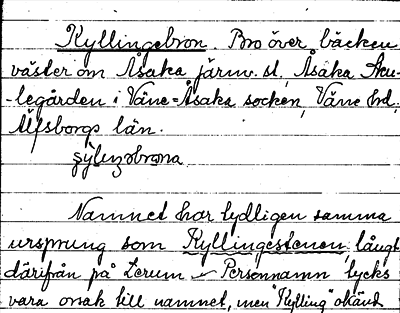 Kyllingebron. Bro över bäcken
väster om Åsaka järnv. st, Åsaka
-legården i Väne=Åsaka socken, Väne hd,
Älfsborgs län.

Namnet har tydligen samma
ursprung som Kyllingestenen långt
därifrån på Lerum - Personnamn tycks
vara orsak till namnet, men "Kylling" okänd